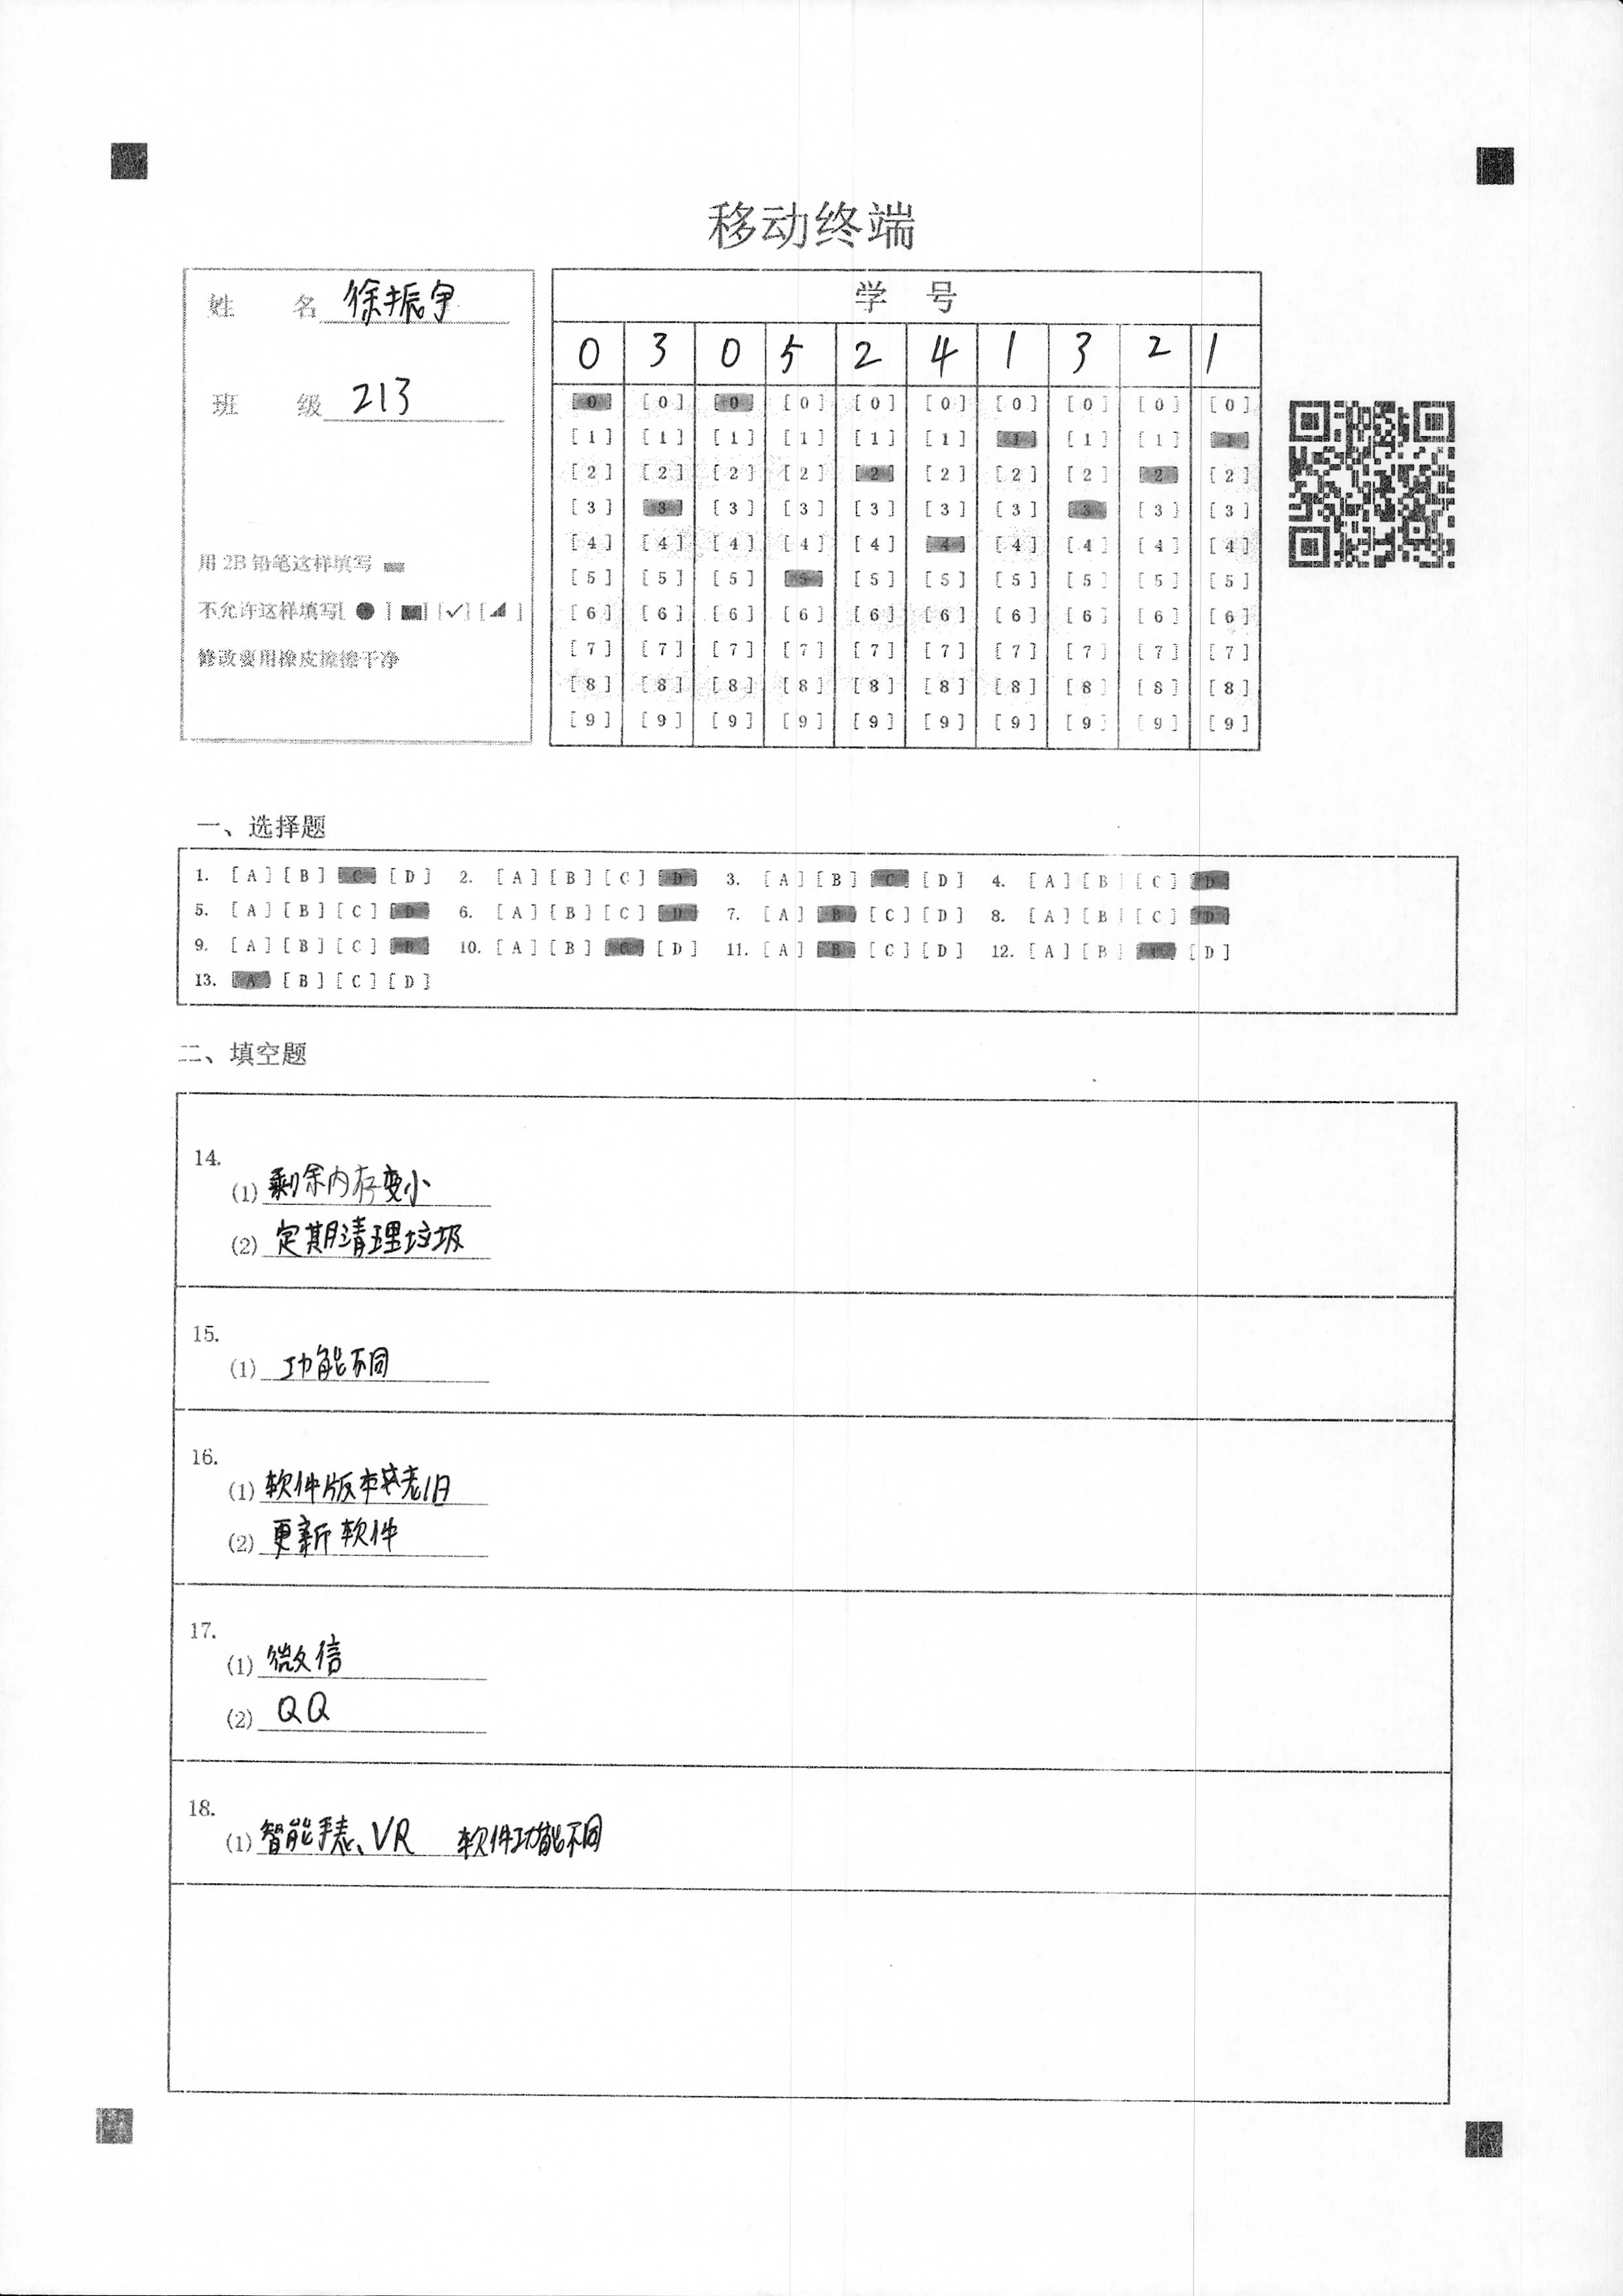 移动终端
姓 名 徐振宇
班 级 213
用 2B 铅笔这样填写
不允许这样填写[ ● ] [■] [✓] [◢ ]
修改要用橡皮擦擦干净
学 号
0 3 0 5 2 4 1 3 2 1
[0] [0] [0] [0] [0] [0] [0] [0] [0] [0]
[1] [1] [1] [1] [1] [1] [1] [1] [1] [1]
[2] [2] [2] [2] [2] [2] [2] [2] [2] [2]
[3] [3] [3] [3] [3] [3] [3] [3] [3] [3]
[4] [4] [4] [4] [4] [4] [4] [4] [4] [4]
[5] [5] [5] [5] [5] [5] [5] [5] [5] [5]
[6] [6] [6] [6] [6] [6] [6] [6] [6] [6]
[7] [7] [7] [7] [7] [7] [7] [7] [7] [7]
[8] [8] [8] [8] [8] [8] [8] [8] [8] [8]
[9] [9] [9] [9] [9] [9] [9] [9] [9] [9]
一、选择题
1. [A] [B] [C] [D] 2. [A] [B] [C] [D] 3. [A] [B] [C] [D] 4. [A] [B] [C] [D]
5. [A] [B] [C] [D] 6. [A] [B] [C] [D] 7. [A] [B] [C] [D] 8. [A] [B] [C] [D]
9. [A] [B] [C] [D] 10. [A] [B] [C] [D] 11. [A] [B] [C] [D] 12. [A] [B] [C] [D]
13. [A] [B] [C] [D]
二、填空题
14.
(1) 剩余内存变小
(2) 定期清理垃圾
15.
(1) 功能不同
16.
(1) 软件版本老旧
(2) 更新软件
17.
(1) 微信
(2) QQ
18.
(1) 智能手表、VR 软件功能不同